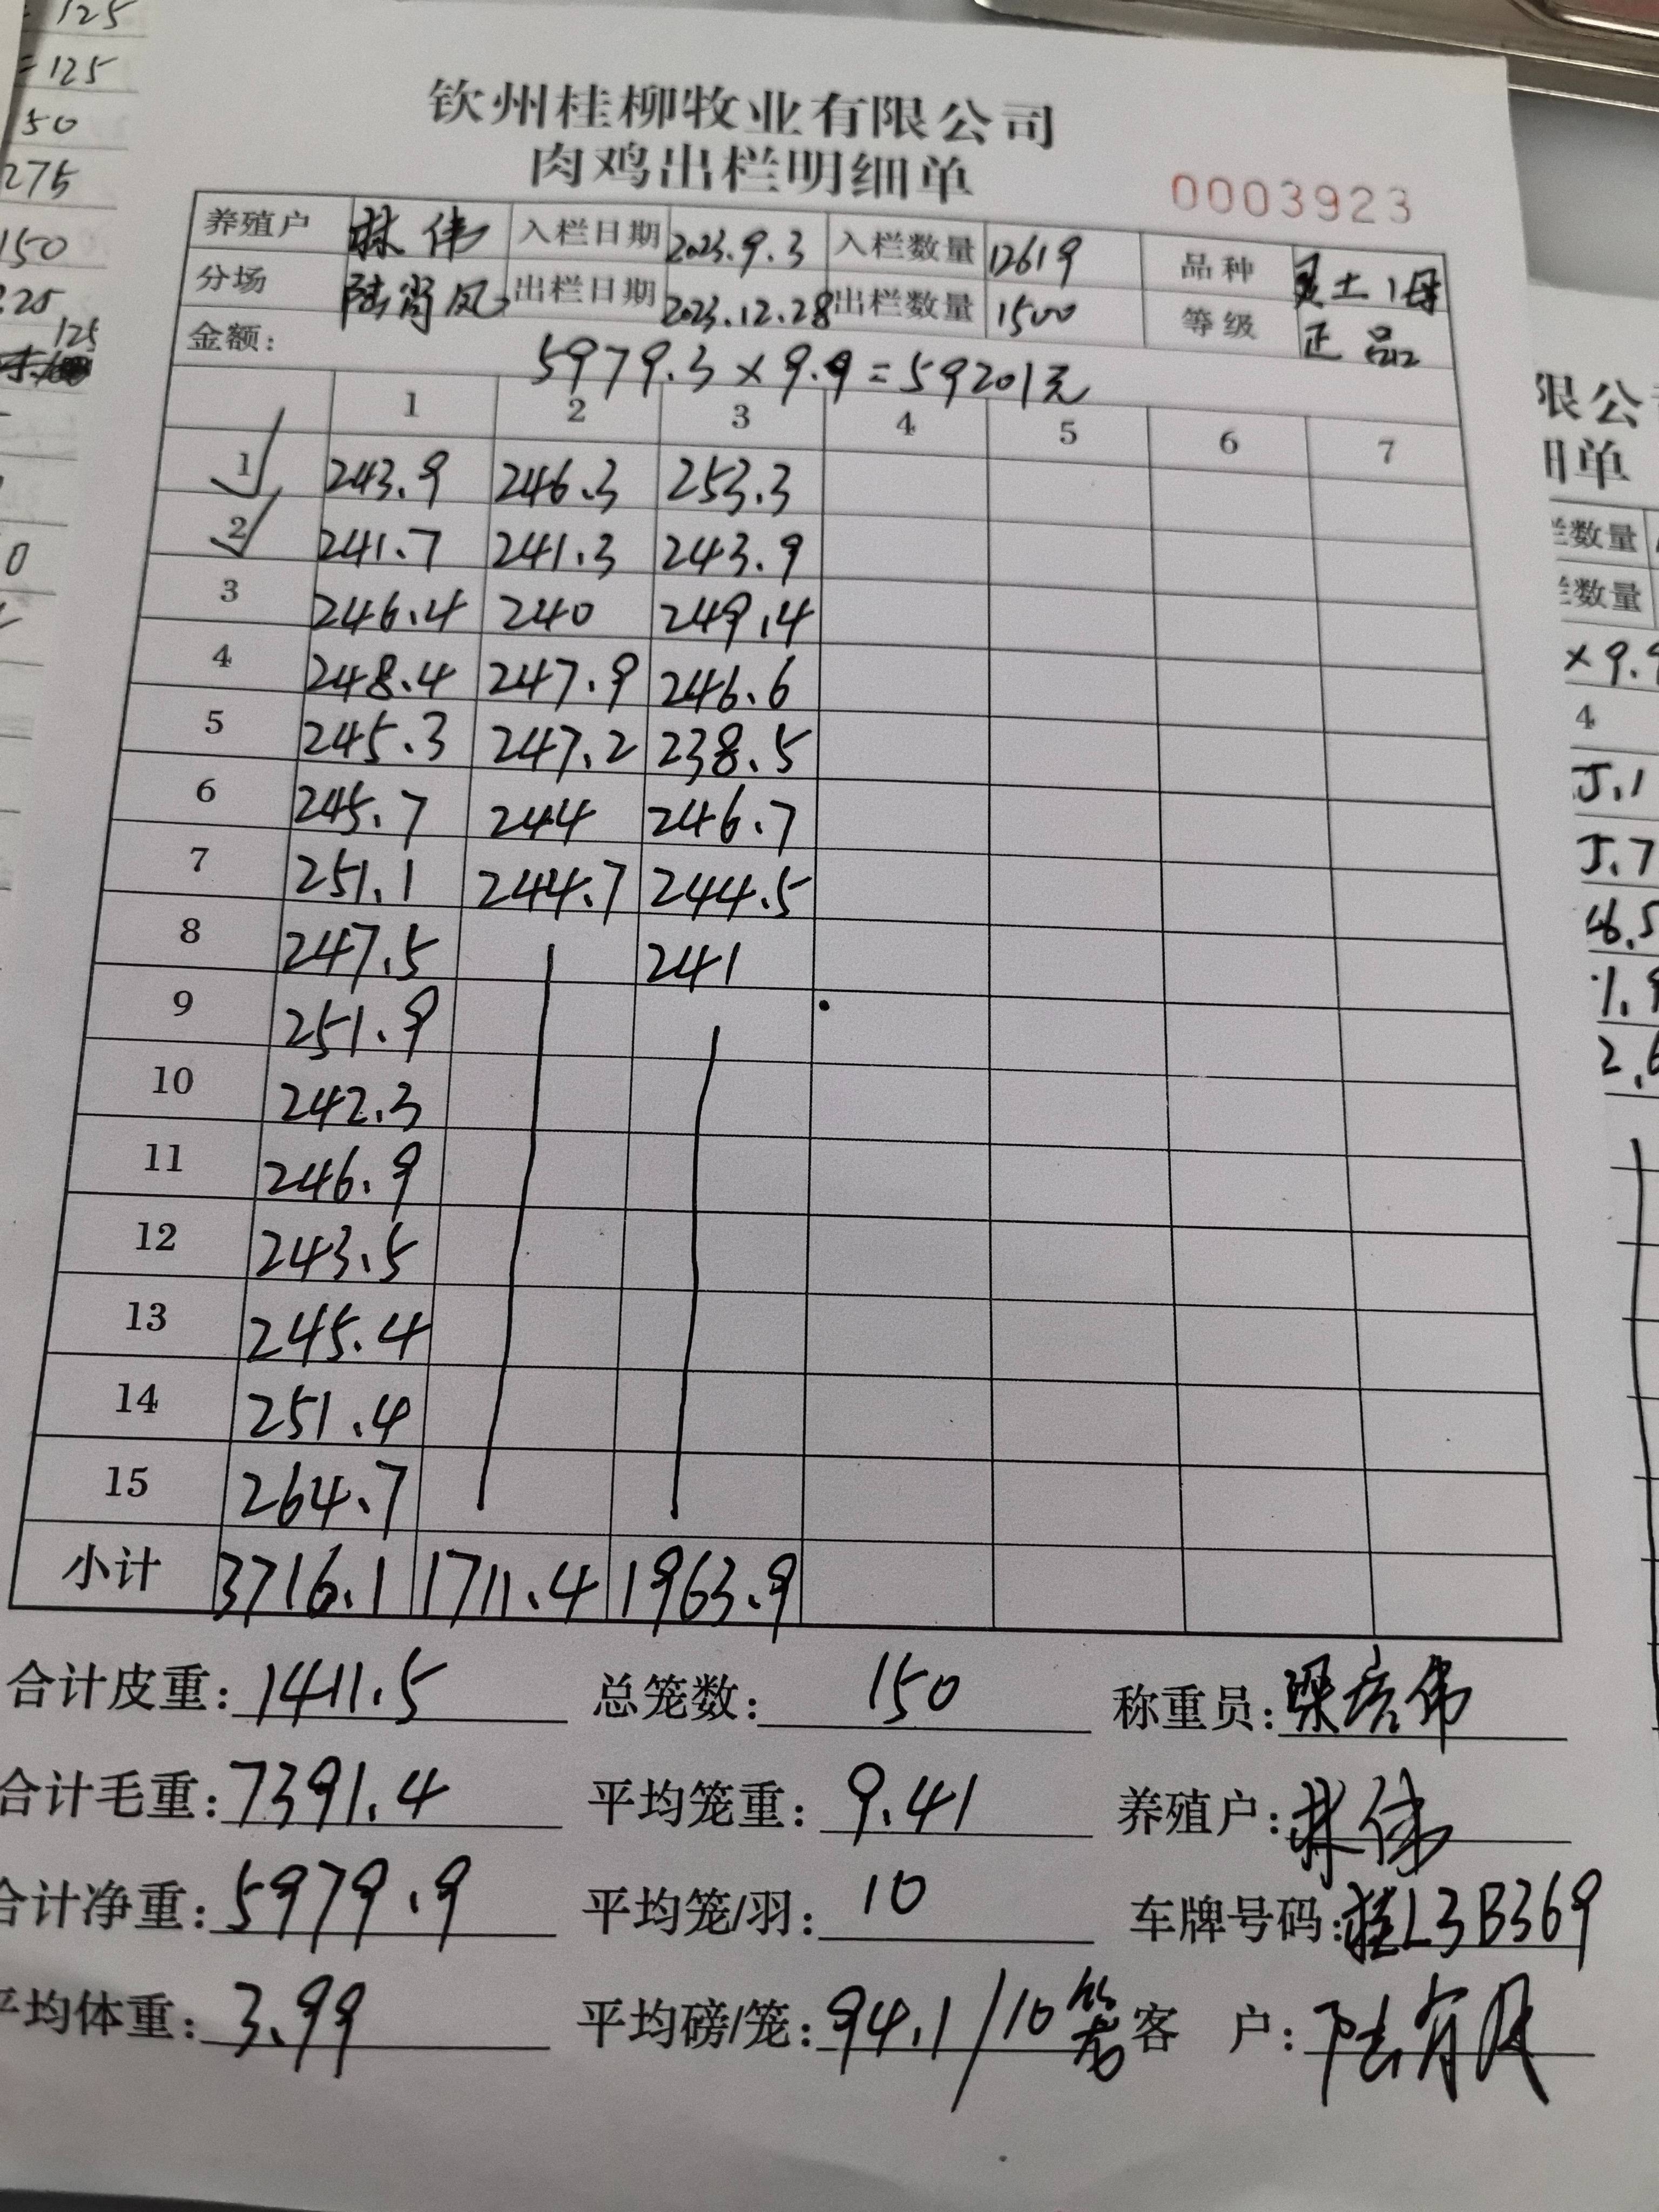 钦州桂柳牧业有限公司
肉鸡出栏明细单
0003923
养殖户 林伟 入栏日期 2023.9.3 入栏数量 12619 品种 灵土1母
分场 陆肖凤 出栏日期 2023.12.28 出栏数量 1500 等级 正品
金额: 5979.3×9.9=59201元
1 2 3 4 5 6 7
1 243.9 246.3 253.3
2 241.7 241.3 243.9
3 246.4 240 249.4
4 248.4 247.9 246.6
5 245.3 247.2 238.5
6 245.7 244 246.7
7 251.1 244.7 244.5
8 247.5 241
9 251.9
10 242.3
11 246.9
12 243.5
13 245.4
14 251.4
15 264.7
小计 3716.1 1711.4 1963.9
合计皮重: 1411.5 总笼数: 150 称重员: 梁培伟
合计毛重: 7391.4 平均笼重: 9.41 养殖户: 林伟
合计净重: 5979.9 平均笼/羽: 10 车牌号码: 桂L3B369
平均体重: 3.99 平均磅/笼: 94.1/10笼 客 户:
125
=125
50
275
150
125
限公
细单
栏数量
栏数量
×9.9
4